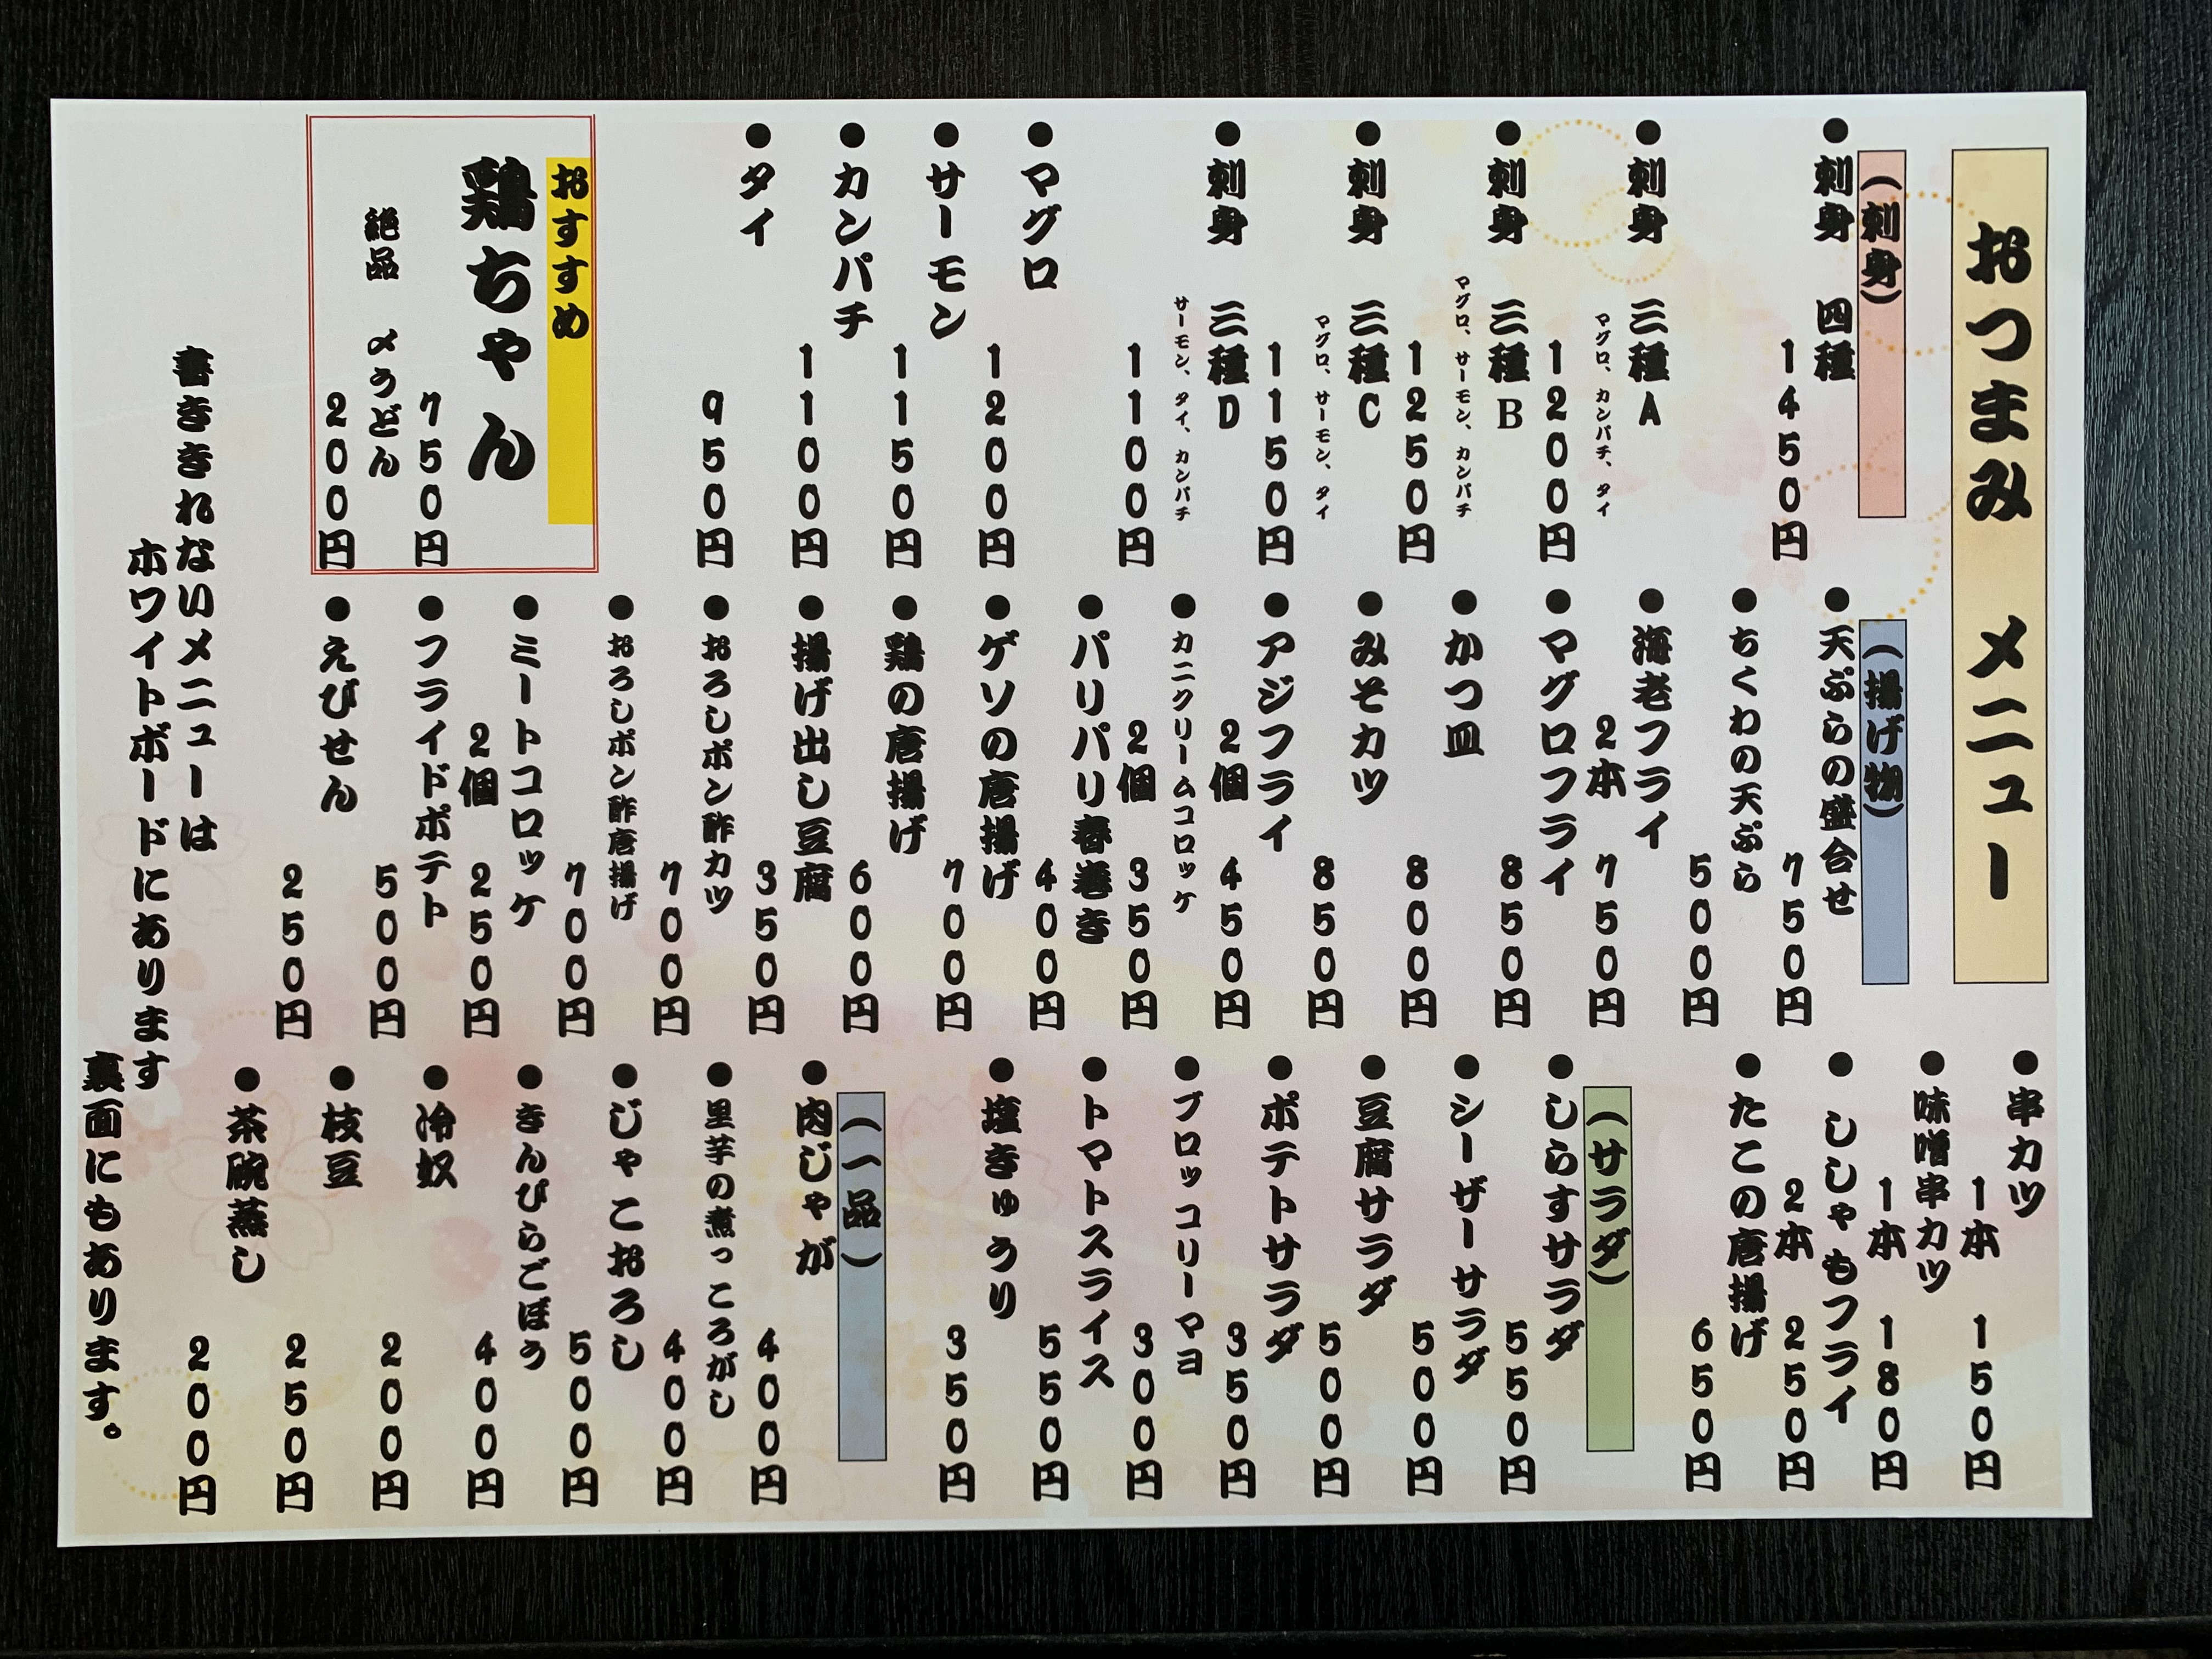 おつまみ メニュー
(刺身)
●刺身 四種
1450円
●刺身 三種A
マグロ、カンパチ、タイ
1200円
●刺身 三種B
マグロ、サーモン、カンパチ
1250円
●刺身 三種C
マグロ、サーモン、タイ
1150円
●刺身 三種D
サーモン、タイ、カンパチ
1100円
●マグロ
1200円
●サーモン
1150円
●カンパチ
1100円
●タイ
950円
おすすめ
鶏ちゃん
750円
絶品 〆うどん
200円
(揚げ物)
●天ぷらの盛合せ
750円
●ちくわの天ぷら
500円
●海老フライ
2本 750円
●マグロフライ
850円
●かつ皿
800円
●みそカツ
850円
●アジフライ
2個 450円
●カニクリームコロッケ
2個 350円
●パリパリ春巻き
400円
●ゲソの唐揚げ
700円
●鶏の唐揚げ
600円
●揚げ出し豆腐
350円
●おろしポン酢カツ
700円
●おろしポン酢唐揚げ
700円
●ミートコロッケ
2個 250円
●フライドポテト
500円
●えびせん
250円
●串カツ
1本 150円
●味噌串カツ
1本 180円
●ししゃもフライ
2本 250円
●たこの唐揚げ
650円
(サラダ)
●しらすサラダ
550円
●シーザーサラダ
500円
●豆腐サラダ
500円
●ポテトサラダ
350円
●ブロッコリーマヨ
300円
●トマトスライス
550円
●塩きゅうり
350円
(一品)
●肉じゃが
400円
●里芋の煮っころがし
400円
●じゃこおろし
500円
●きんぴらごぼう
400円
●冷奴
200円
●枝豆
250円
●茶碗蒸し
200円
書ききれないメニューは
ホワイトボードにあります
裏面にもあります。